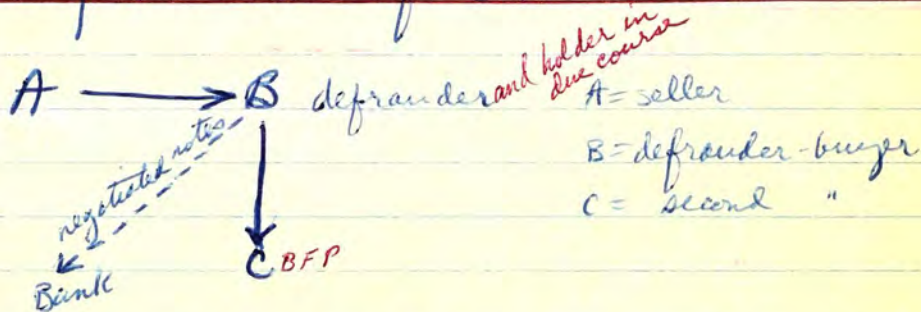 A → B defrauder and holder in
due course
A = seller
B = defrauder-buyer
C = second "
negotiated notes
C BFP
Bank